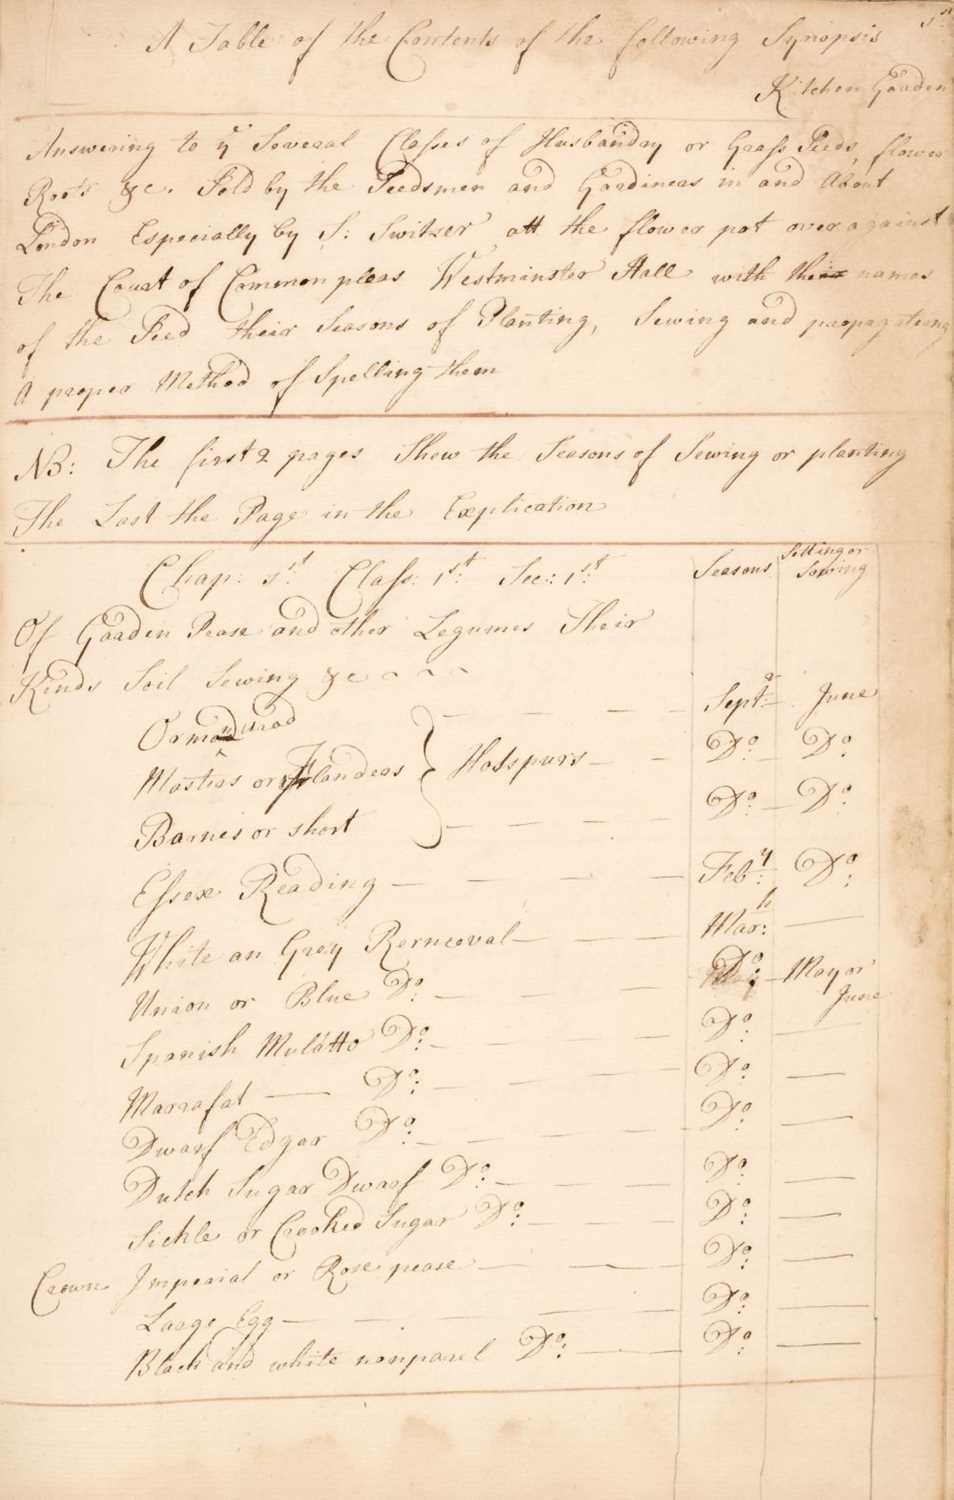 1st
A Table of the Contents of the following Synopsis
Kitchen Garden
Answering to ye Several Classes of Husbandry or Grass Seeds, flower
Roots &c. Sold by the Seedsmen and Gardiners in and About
London Especially by S: Switzer att the flower pot over against
The Court of Common pleas Westminster Hall with their names
of the Seed their Seasons of Planting, Sewing and propagateing
A proper Method of Spelling them
NB: The first 2 pages Shew the Seasons of Sewing or planting
The Last the Page in the Explication
Chap: 1st Class: 1st: Sec: 1st: Seasons Setting or Sowing
Of Garden Pease and other Legumes Their
Kinds Soil Sewing &c
Ormondward Septr June
Masters or Flanders Hotspurs Do: Do:
Barnes or short Do: Do:
Essex Reading Feby: Do:
White an Grey Rerneoval Marh:
Union or Blue Do: Do: May or June
Spanish Mulatto Do: Do:
Marrafat Do: Do:
Dwarf Edgar Do: Do:
Dutch Sugar Dwarf Do: Do:
Sickle or Crooked Sugar Do: Do:
Crown Imperial or Rose pease Do:
Large Egg Do:
Black and white nonparel Do: Do: